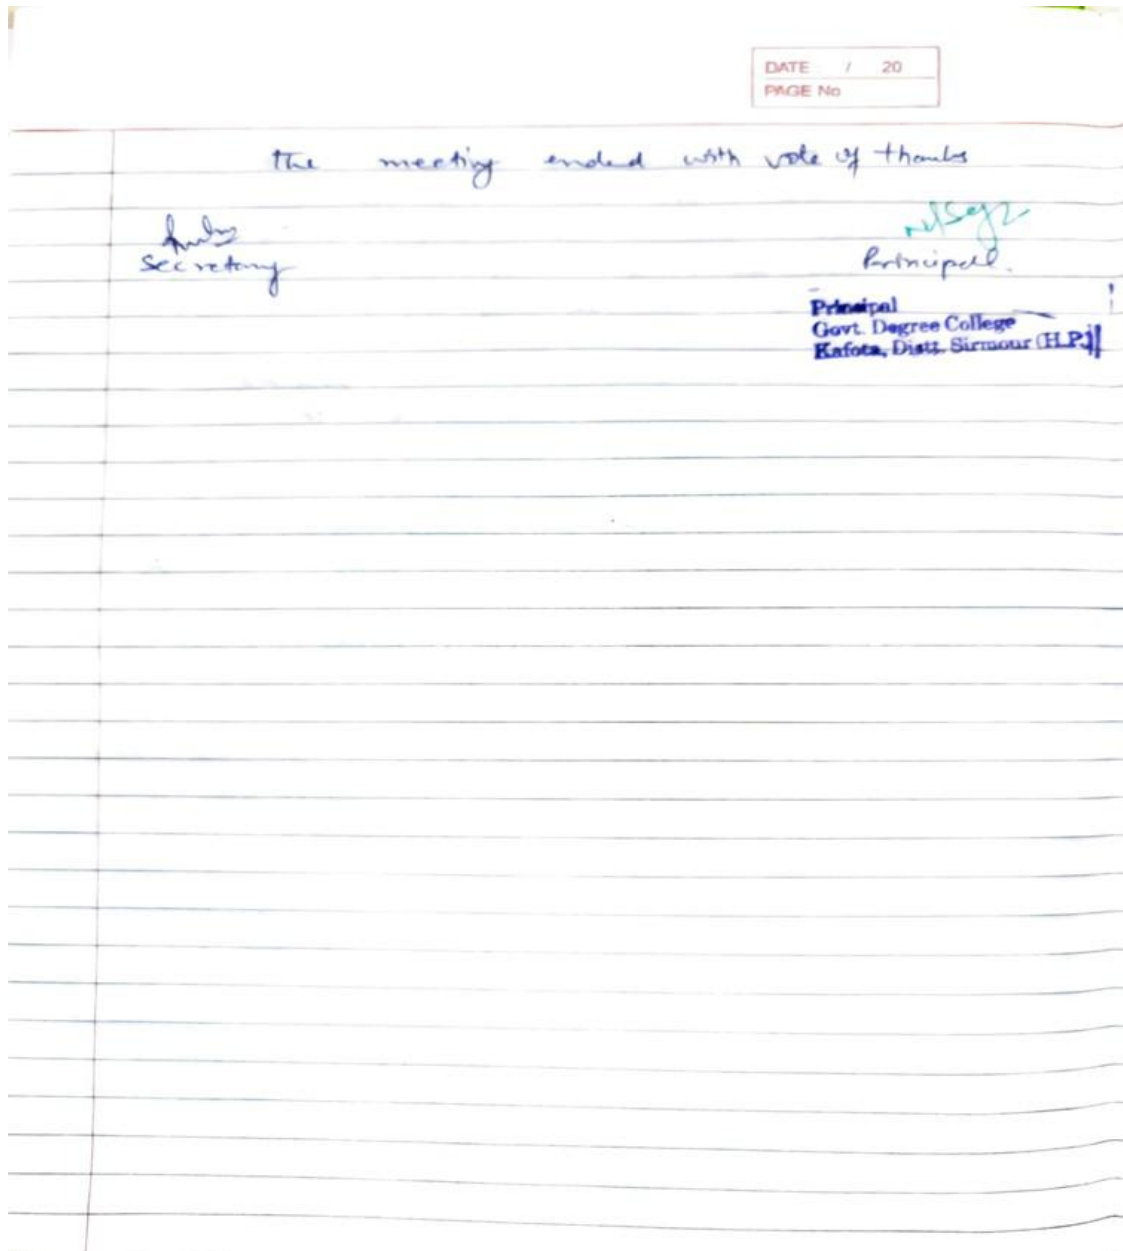 DATE / 20
PAGE No
The meeting ended with vote of thanks
Secretary
Principal.
Principal
Govt. Degree College
Kafota, Distt. Sirmour (H.P.)